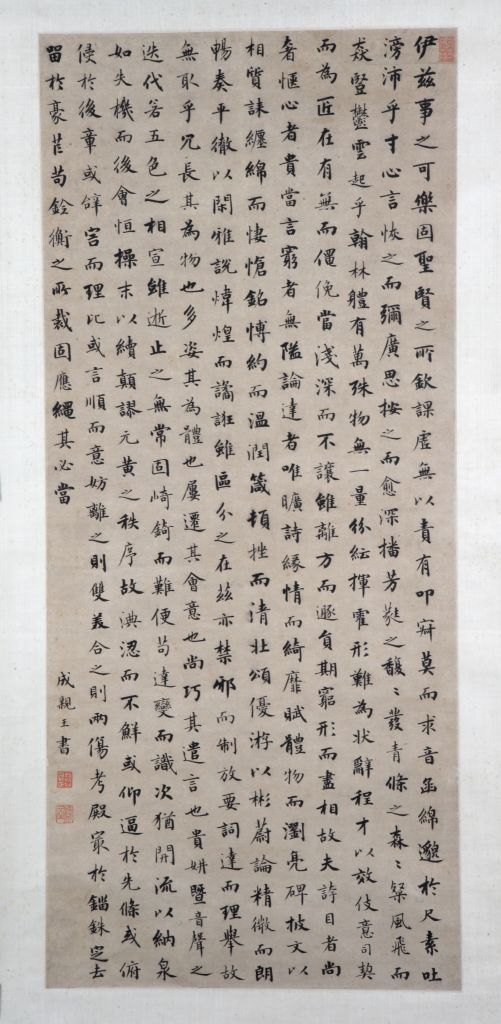 伊茲事之可樂固聖賢之所欽課虛無以責有叩寂莫而求音函綿邈於尺素吐
滂沛乎寸心言恢之而彌廣思按之而愈深播芳蕤之馥〻發青條之森〻粲風飛而
猋豎鬱雲起乎翰林體有萬殊物無一量紛紜揮霍形難為狀辭程才以效伎意司契
而為匠在有無而僶俛當淺深而不讓雖離方而遯員期窮形而盡相故夫誇目者尚
奢愜心者貴當言窮者無隘論達者唯曠詩緣情而綺靡賦體物而瀏亮碑披文以
相質誄纏綿而悽愴銘博約而温潤箴頓挫而清壯頌優游以彬蔚論精微而朗
暢奏平徹以閑雅說煒煌而譎誑雖區分之在茲亦禁邪而制放要詞達而理舉故
無取乎冗長其為物也多姿其為體也屢遷其會意也尚巧其遣言也貴妍暨音聲之
迭代若五色之相宣雖逝止之無常固崎錡而難便苟達變而識次猶開流以納泉
如失機而後會恒操末以續顛謬元黃之秩序故淟涊而不鮮或仰逼於先條或俯
侵於後章或辭害而理比或言順而意妨離之則雙美合之則兩傷考殿最於錙銖定去
留於豪芒苟銓衡之所裁固應繩其必當
成親王書